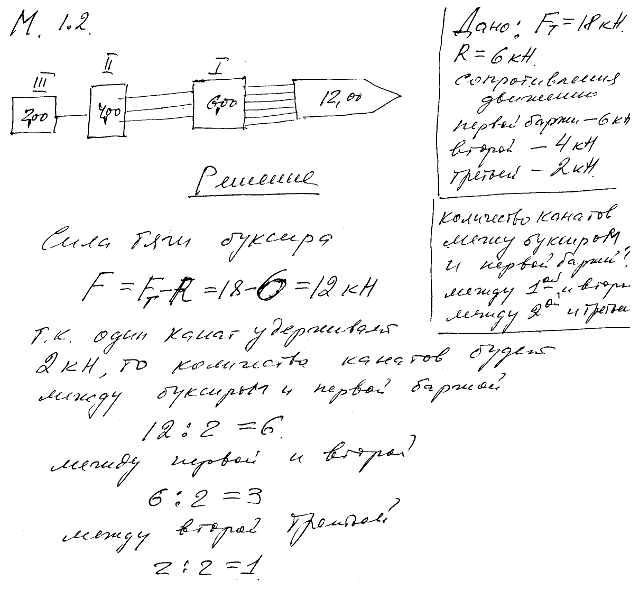 М. 1.2.
III
II
I
2,00
4,00
6,00
12,00
Дано: Fт = 18 кН.
R = 6 кН.
сопротивления
движению
первой баржи – 6 кН
второй – 4 кН
третьей – 2 кН.
количество канатов
между буксиром
и первой баржи?
между 1ой и втор
между 2ой и третьей
Решение
Сила тяги буксира
F = Fт - R = 18 - 6 = 12 кН
т.к. один канат удерживает
2 кН, то количество канатов будет
между буксиром и первой баржой
12 : 2 = 6.
между первой и второй
6 : 2 = 3
между второй третьей
2 : 2 = 1